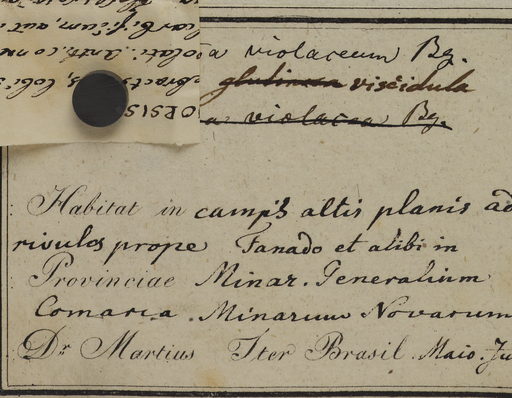 a violaceum Bg.
glutinosa viscidula
a violacea Bg.
Habitat in campis altis planis ad
rivulos prope Fanado et alibi in
Provinciae Minar. Generalium
Comarca Minarum Novarum
Dr. Martius Iter Brasil. Maio. Ju